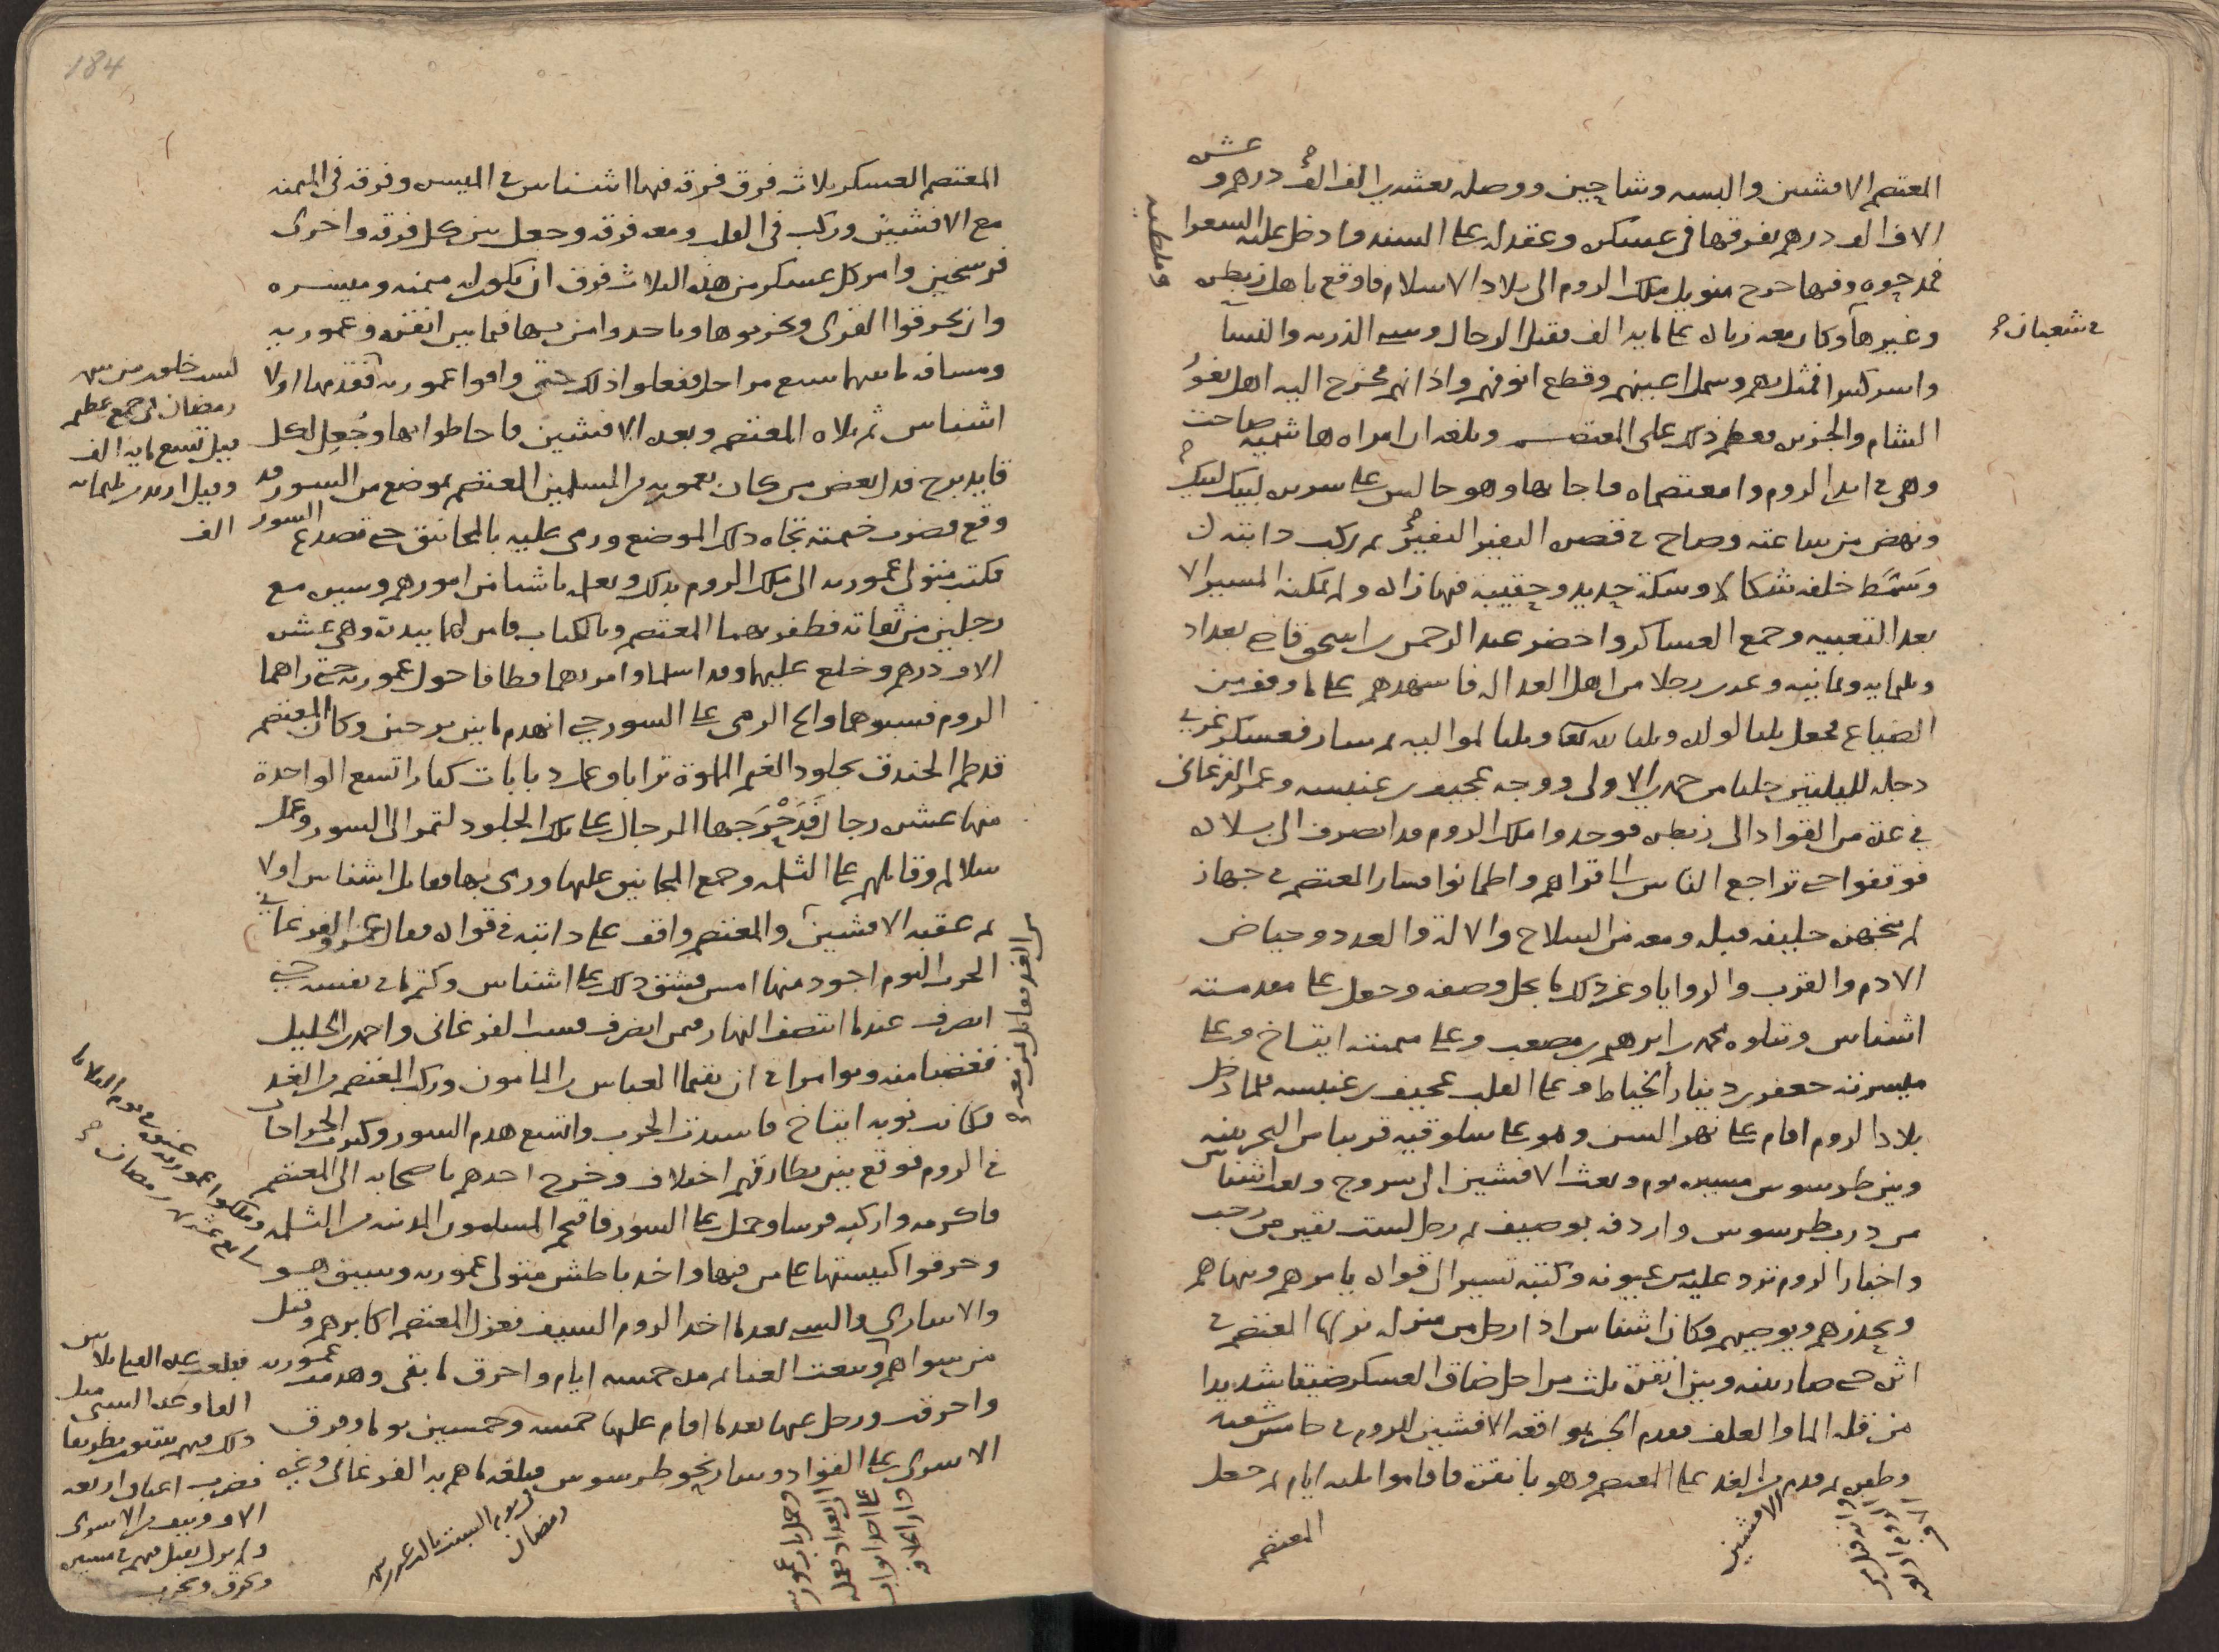 المعتصم الافشين والبسه وشاحين ووصله بعشرين الف الف درهم و عشره
الاف الف درهم يفرقها في عسكره وعقد له على السند وادخل عليه الشعرا
فمدحوه وفيها خرج نوفيل ملك الروم الى بلاد الاسلام فاوقع باهل زبطره
وملطيه
وغيرها وكان معه زياده على مايه الف فقتل الرجال وسبى الذريه والنسا
في شعبان
واسر كثيرا فمثل بهم وسمل اعينهم وقطع انوفهم واذانهم فخرج اليه اهل ثغور
الشام والجزيره فعظم ذلك على المعتصم وبلغه ان امراه هاشميه صاحت
وهي في ايدي الروم وامعتصماه فاجابها وهو جالس على سريره لبيك لبيك
ونهض من ساعته وصاح في قصره النفير النفير ثم ركب دابته
وسمط خلفه شكالا وسكة حديد وحقيبه فيها زاده ولم يمكنه المسير الا
بعد التعبيه وجمع العساكر واحضر عبد الرحمن بن اسحق قاضي بغداد
وثلثمايه وثمانيه وعشرين رجلا من اهل العداله فاشهدهم على ما وقف من
الضياع فجعل ثلثا لولده وثلثا لله تعالى وثلثا لمواليه ثم سار فعسكر غربي
دجله لليلتين خلتا من جمادى الاولى ووجه عجيف بن عنبسه وعمر الفرغاني
في عدة من القواد الى زبطره فوجدوا ملك الروم قد انصرف الى بلاده
فوقفوا حتى تراجع الناس الى قراهم واطمانوا فسار المعتصم في جهاز
لم يتجهزه خليفه قبله ومعه من السلاح والالة والعدد وحياض
الادم والقرب والروايا وغير ذلك ما يجل وصفه وجعل على مقدمته
اشناس ويتلوه محمد بن ابراهيم بن مصعب وعلى ميمنته ايتاخ وعلى
ميسرته جعفر بن دينار الخياط وعلى القلب عجيف بن عنبسه فلما دخل
بلاد الروم اقام على نهر السن وهو على سلوقيه قريبا من البحر بينه
وبين طرسوس مسيره يوم وبعث الافشين الى سروج وبعث اشناس
من درب طرسوس واردفه بوصيف ثم رحل لست بقين من رجب
واخبار الروم ترد عليه من عيونه وكتبه تسير الى قواده يامرهم وينهاهم
ويحذرهم ويوصيهم وكان اشناس اذا رحل من منزل نزلها المعتصم في
اثره حتى صار بينه وبين انقره ثلث مراحل ضاق العسكر ضيقا شديدا
من قلة الما والعلف فقدم الخبر بمواقعة الافشين للروم في خامس شعبان
وظفره ثم قدم من الغد على المعتصم وهو بانقره فاقاموا ثلثه ايام ثم جعل
الافشين
المعتصم
184
المعتصم العسكر ثلاثه فرق فرقه فيها اشناس في الميسره وفرقه في الميمنه
مع الافشين وركب في القلب ومعه فرقه وجعل بين كل فرقه واخرى
فرسخين وامر كل عسكر من هذه الثلاث فرق ان يكون له ميمنه وميسره
وان يحرقوا القرى ويخربوها وياخذوا من بها فيما بين انقره وعموريه
ومسافه ما بينهما سبع مراحل ففعلوا ذلك حتى وافوا عموريه فقدمها اولا
اشناس ثم تلاه المعتصم وبعده الافشين فاحاطوا بها وجعل لكل
قايد برج فدل بعض من كان بعموريه من المسلمين المعتصم بموضع من السور قد
وقع فضرب خيمته تجاه ذلك الموضع ورمى عليه بالمجانيق حتى تصدع السور
لست خلون من شهر
رمضان في جمع عظيم
قيل تسع مايه الف
وقيل اربع ثلثمايه
الف
فكتب متولي عموريه الى ملك الروم بذلك وبعله باشيا من امورهم وسيره مع
رجلين من ثقاته فظفر بهما المعتصم وبالكتاب فامر لهما ببدرة وهي عشره
الاف درهم وخلع عليهما وقد اسلما وامر بهما فطافا حول عموريه حتى راهما
الروم فسبوهما والح الرمي على السور حتى انهدم ما بين برجين وكان المعتصم
قد طم الخندق بجلود الغنم المملوة ترابا وعمل دبابات كبارا تسع الواحدة
منها عشره رجال قد حرجها الرجال على تلك الجلود لتمر الى السور وعمل
سلالم وقاتلهم على الثلمه وجمع المجانيق عليها ورمى بها فقاتل اشناس اولا
ثم عقبه الافشين والمعتصم واقف على دابته في قواده فقال عمرو الفرغاني
الحرب اليوم اجود منها امس فشق ذلك على اشناس وكتم ما في نفسه حتى
انصرف عندما انتصف النهار فمر انصرف فسب الفرغاني واحمد بن الخليل
فغضبا منه وتوامرا في ان يقيما العباس بن المامون وركب المعتصم من الغد
فكانت نوبه ايتاخ فاشتدت الحرب واتسع هدم السور وكثرت الجراحات
في الروم فوقع بين بطارقتهم اختلاف وخرج احدهم باصحابه الى المعتصم
فاكرمه واركبه فرسا وحمل على السور فاقتحم المسلمون المدينه من الثلمه
وملكوا عموريه عنوه في يوم الثلاثا
سابع عشر رمضان
وحرقوا كنيستها على من فيها واخذ باطس متولي عموريه وسيق هو
والاسارى والسبي بعدما اخذ الروم السيف فعزل المعتصم اكابرهم وقتل
من سواهم وبيعت الغنايم مده خمسه ايام واحرق ما بقي وهدمت عموريه
واحرقت ورحل عنها بعدما اقام عليها خمسه وخمسين يوما وفرق
الاسرى على القواد وسار نحو طرسوس فبلغه ما هم به الفرغاني وغيره
فبلغت عدة القتلى ثلاثين
الفا وعدة السبي مثل
ذلك فيهم ستون بطريقا
فضرب اعناق اربعه
الاف ونيف من الاسرى
ولم يزل يقتل فيهم في مسيره
ويحرق ويخرب
رمضان